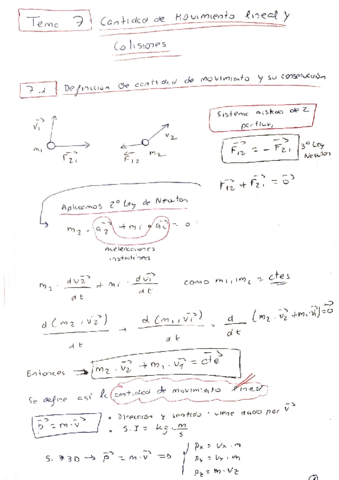 Tema 7 Cantidad de Movimiento lineal y
Colisiones
7.1 Definición de cantidad de movimiento y su conservación
Sistema aislado de 2
partículas
v₁→ v₂→
m₁ F₂₁→ F₁₂→ m₂
F₁₂→ = - F₂₁→ 3ª Ley Newton
F₁₂→ + F₂₁→ = 0→
Aplicamos 2ª ley de Newton
m₂ · a₂→ + m₁ · a₂→ = 0
Aceleraciones
instantáneas
m₂ · dv₂→/dt + m₁ · dv₁→/dt como m₁, m₂ = ctes
d(m₂ · v₂→)/dt + d(m₁ · v₁→)/dt = d/dt (m₂ · v₂→ + m₁ · v₁→) = 0→
Entonces → m₂ · v₂→ + m₁ · v₁→ = cte→
Se define así la cantidad de movimiento lineal
p→ = m · v→ • Dirección y sentido: viene dado por v→
• S.I = kg · m/s
Si 3D → p→ = m · v→ ⇒ { px = vx · m
py = vy · m
pz = m · vz